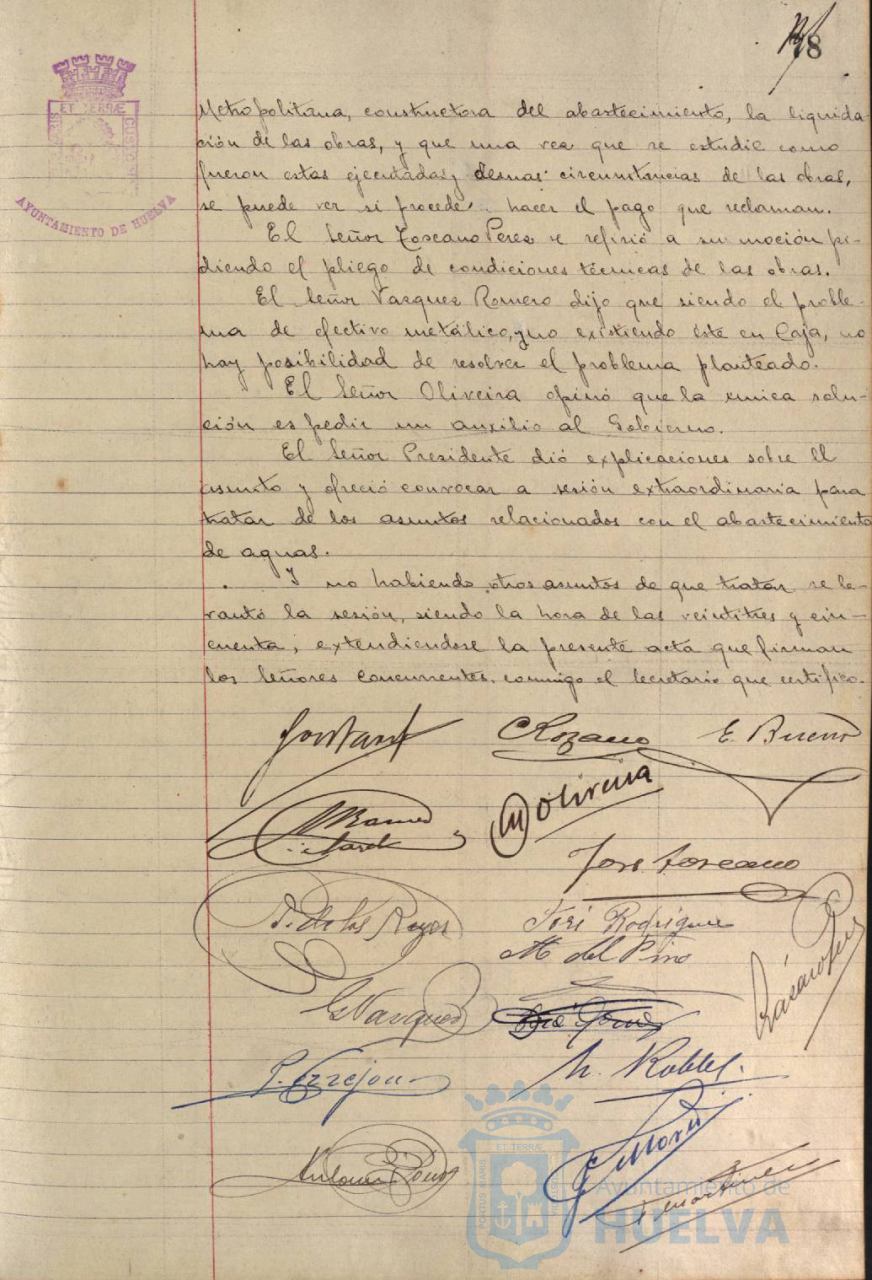 138
ET TERRÆ
CUSTO
AYUNTAMIENTO DE HUELVA
Metropolitana, constructora del abastecimiento, la liquida-
ción de las obras, y que una vez que se estudie como
fueron estas ejecutadas y demas circunstancias de las obras,
se puede ver si procede hacer el pago que reclaman.
El Señor Toscano Perez se refirió a su moción pi-
diendo el pliego de condiciones técnicas de las obras.
El Señor Vazquez Romero dijo que siendo el proble-
ma de efectivo metálico, y no existiendo éste en Caja, no
hay posibilidad de resolver el problema planteado.
El Señor Oliveira opinó que la unica solu-
ción es pedir un auxilio al Gobierno.
El Señor Presidente dió explicaciones sobre el
asunto y ofreció convocar a sesión extraordinaria para
tratar de los asuntos relacionados con el abastecimiento
de aguas.
Y no habiendo otros asuntos de que tratar se le-
vantó la sesión, siendo la hora de las veintitres y cin-
cuenta; extendiendose la presente acta que firman
los Señores concurrentes, conmigo el Secretario que certifico.
E. Bueno
M Oliveira
José Toscano
P. de los Reyes
José Rodriguez
M del Pino
G Vazquez
José Gomez
P. Cerrejon
M. Robles
ET TERRÆ
PORTUS MARIS
Ayuntamiento de
HUELVA